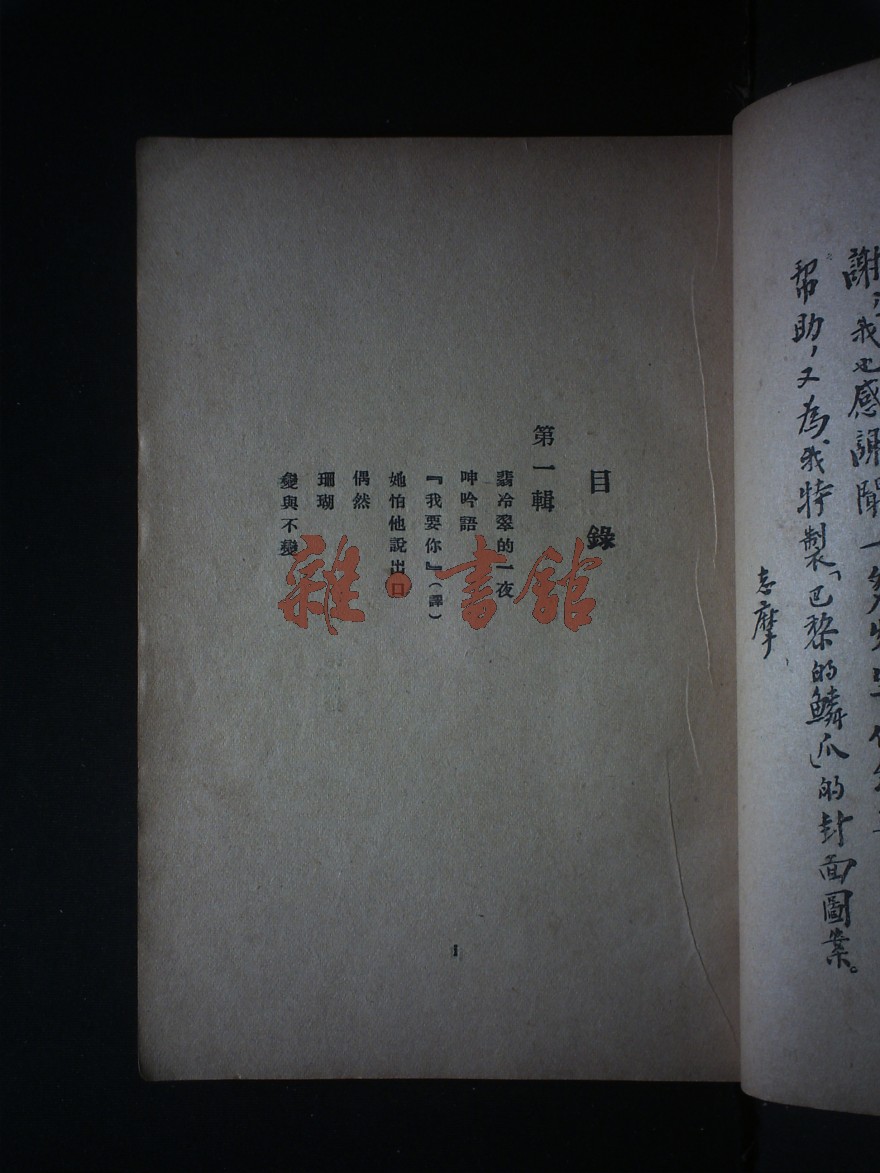 謝,我也感謝聞一多先生
幫助,又為我特製「巴黎的鱗爪」的封面圖案。
志摩
目錄
第一輯
翡冷翠的一夜
呻吟語
『我要你』(譯)
她怕他說出口
偶然
珊瑚
變與不變
1
雜·書館